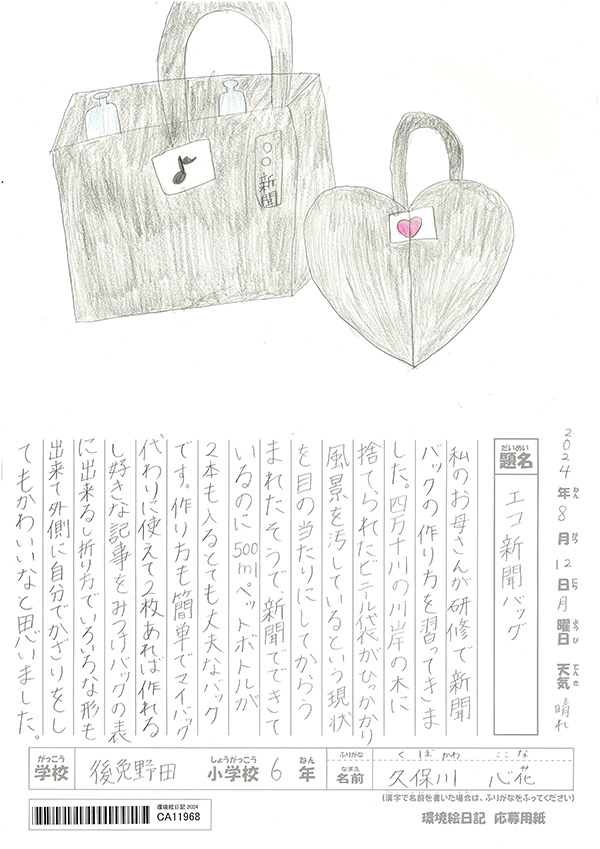 ○○新聞
2024年8月12日月曜日 天気 晴れ
ねん がつ にち ようび てんき
だいめい
題名
エコ新聞バッグ
私のお母さんが研修で新聞
バックの作り方を習ってきま
した。四万十川の川岸の木に
捨てられたビニール袋がひっかかり
風景を汚しているという現状
を目の当たりにしてからう
まれたそうで、新聞でできて
いるのに500mlペットボトルが
2本も入るとても丈夫なバック
です。作り方も簡単でマイバッグ
代わりに使えて2枚あれば作れる
し好きな記事をみつけバッグの表
に出来るし折り方でいろいろな形も
出来て外側に自分でかざりをし
てもかわいいなと思いました。
がっこう しょうがっこう ねん
学校 後免野田 小学校 6年
ふりがな くぼかわ ここな
なまえ
名前 久保川 心花
(漢字で名前を書いた場合は、ふりがなをふってください)
環境絵日記 2024
CA11968
環境絵日記 応募用紙